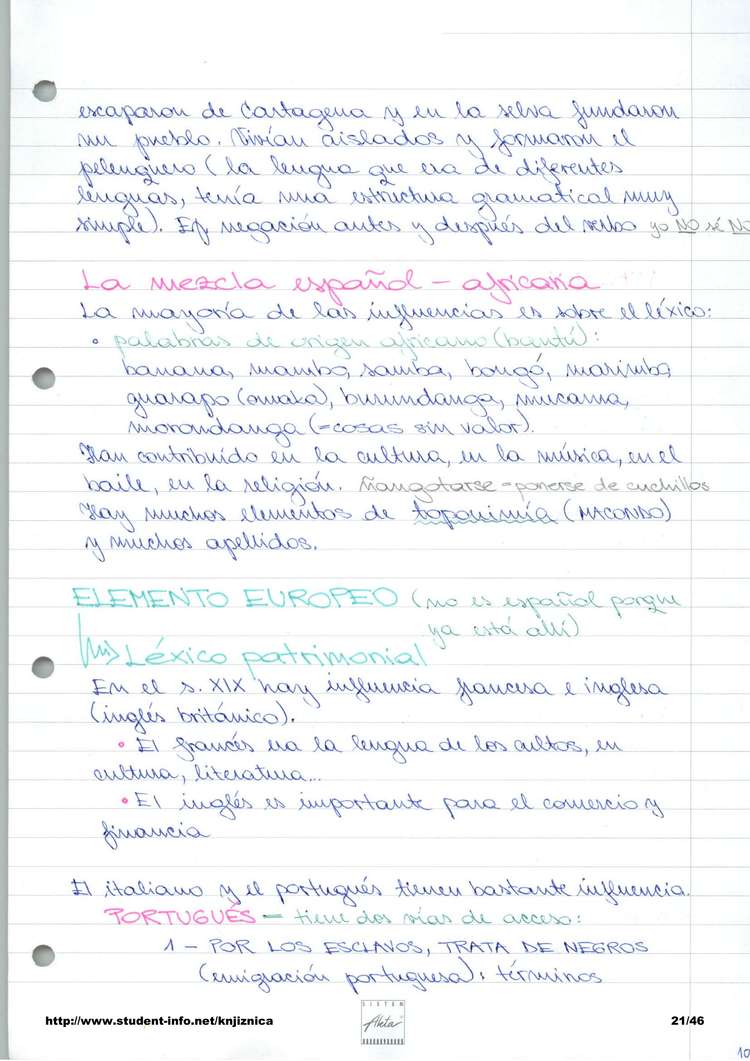 escaparon de Cartagena y en la selva fundaron
un pueblo. Vivían aislados y formaron el
pelenquero (la lengua que era de diferentes
lenguas, tenía una estructura gramatical muy
simple). Ej negación antes y después del verbo yo NO sé NO
La mezcla español - africana
La mayoría de las influencias es sobre el léxico:
• palabras de origen africano (bantú):
banana, mambo, samba, bongó, marimba
guarapo (omaka), burundanga, mucama,
morondanga (=cosas sin valor).
Han contribuído en la cultura, en la música, en el
baile, en la religión. Ñangotarse = ponerse de cuchillos
Hay muchos elementos de toponimia (MACONDO)
y muchos apellidos.
ELEMENTO EUROPEO (no es español porque
ya está allí)
Léxico patrimonial
En el s. XIX hay influencia francesa e inglesa
(inglés británico).
• El francés era la lengua de los cultos, en
cultura, literatura...
• El inglés es importante para el comercio y
financia
El italiano y el portugués tienen bastante influencia.
PORTUGUÉS - tiene dos vías de acceso:
1 - POR LOS ESCLAVOS, TRATA DE NEGROS
(emigración portuguesa): términos
http://www.student-info.net/knjiznica
SISTEM
Akta
21/46
10